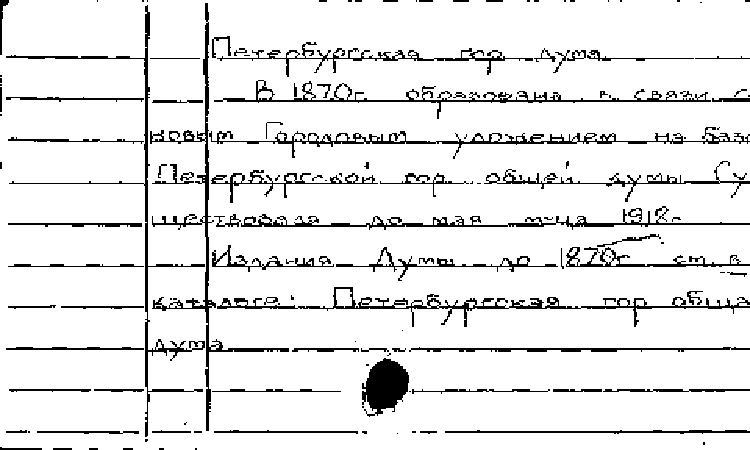 Петербургская гор дума
В 1870г. образована в связи с
новым Городовым уложением на базе
Петербургской гор. общей думы Су
ществовала до мая м-ца 1918.
Издания Думы до 1870г см. в
каталоге: Петербургская гор обща
дума